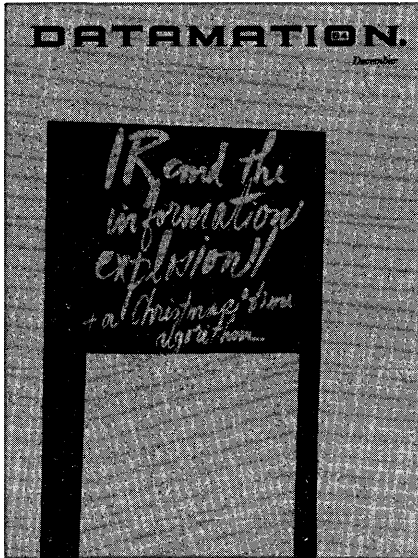 DATAMATION.
December
IR and the
information
explosion!!
+ a Christmas time
algorithm...